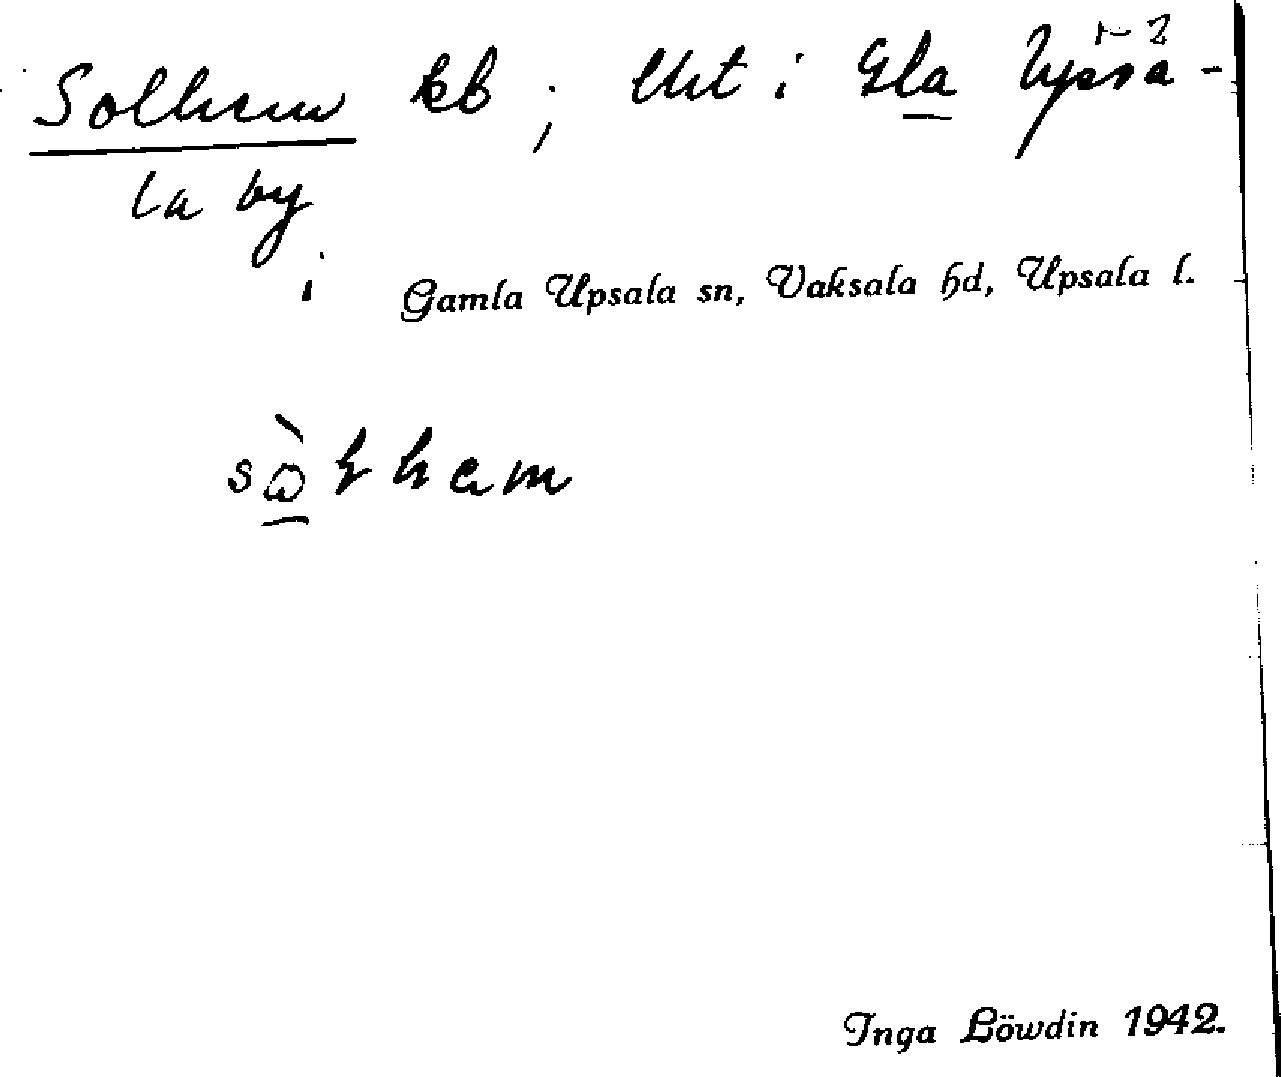 Solhem kb; Utt i Gla Upsa-
la by
i Gamla Upsala sn, Vaksala hd, Upsala l.
Inga Löwdin 1942.